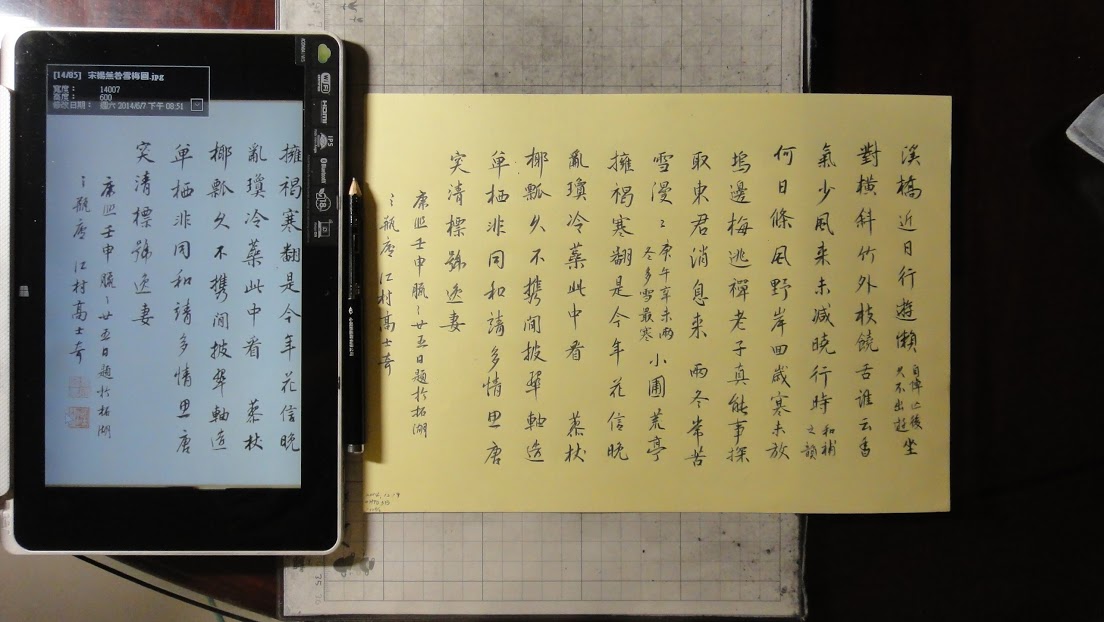 溪橋近日行遊懶 自悼亡後久不出遊 坐
對橫斜竹外枝饒舌誰云香
氣少風來未減曉行時 和補之韻
何日條風野岸回歲寒未放
塢邊梅逃禪老子真能事探
取東君消息來 兩冬常苦
雪漫〻 庚午辛未兩冬多雪最寒 小圃荒亭
擁褐寒翻是今年花信晚
亂瓊冷蘂此中看 藜杖
椰瓢久不携閒披翠軸
單栖非同和靖多情思唐
突清標號逸妻
康熙壬申臘〻廿五日題於柘湖
〻瓶廬 江村高士奇
[14/85] 宋楊無咎雪梅圖.jpg
寬度： 14007
高度： 600
修改日期： 週六 2014/6/7 下午 08:51
擁褐寒翻是今年花信晚
亂瓊冷蘂此中看 藜杖
椰瓢久不携閒披翠軸
單栖非同和靖多情思唐
突清標號逸妻
康熙壬申臘〻廿五日題於柘湖
〻瓶廬 江村高士奇
WiFi
HDMI
IPS
Bluetooth